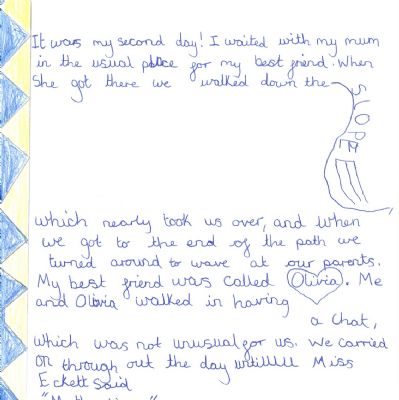 It was my second day! I waited with my mum
in the usual place for my best friend. When
She got there we walked down the
SLOPE
which nearly took us over, and when
we got to the end of the path we
turned around to wave at our parents.
My best friend was called Olivia. Me
and Olivia walked in having
a chat,
which was not unusual for us. We carried
on through out the day untillll Miss
Eckett said